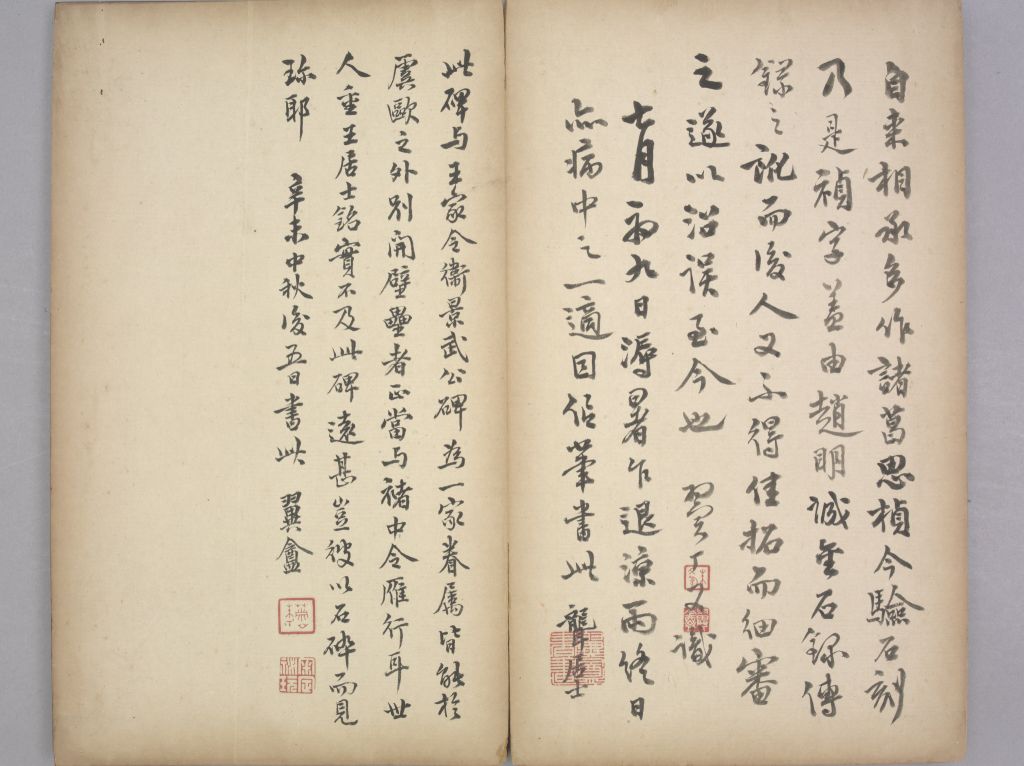 自来相承多作諸葛思楨今驗石刻
乃是禎字蓋由趙明誠金石錄傳
錄之訛而後人又不得佳拓而細審
之遂以沿誤至今也 翼又識
七月初九日溽暑乍退涼雨終日
亦病中之一適因信筆書此 龍居士
此碑与王家令衛景武公碑為一家眷属皆能於
虞歐之外別開壁壘者正當与褚中令雁行耳世
人重王居士銘實不及此碑遠甚豈彼以石碎而見
珎耶 辛未中秋後五日書此 翼盦